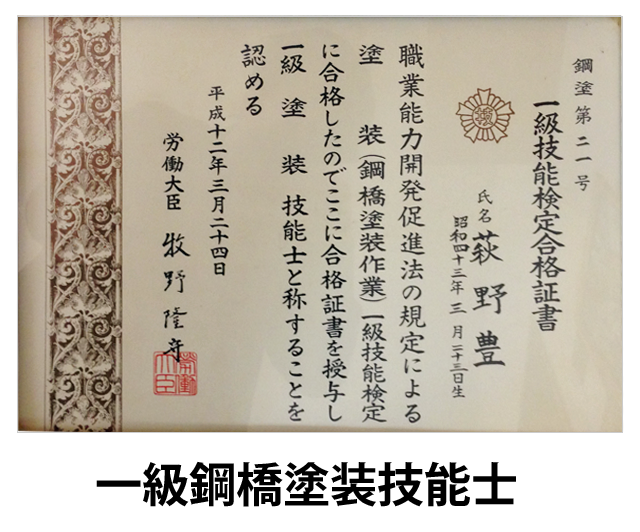 鋼塗第二一号
一級技能検定合格証書
氏名 萩野豊
昭和四十三年三月二十三日生
職業能力開発促進法の規定による
塗装(鋼橋塗装作業)一級技能検定
に合格したのでここに合格証書を授与し
一級塗装技能士と称することを
認める
平成十二年三月二十四日
労働大臣 牧野隆守
労働大臣
一級鋼橋塗装技能士